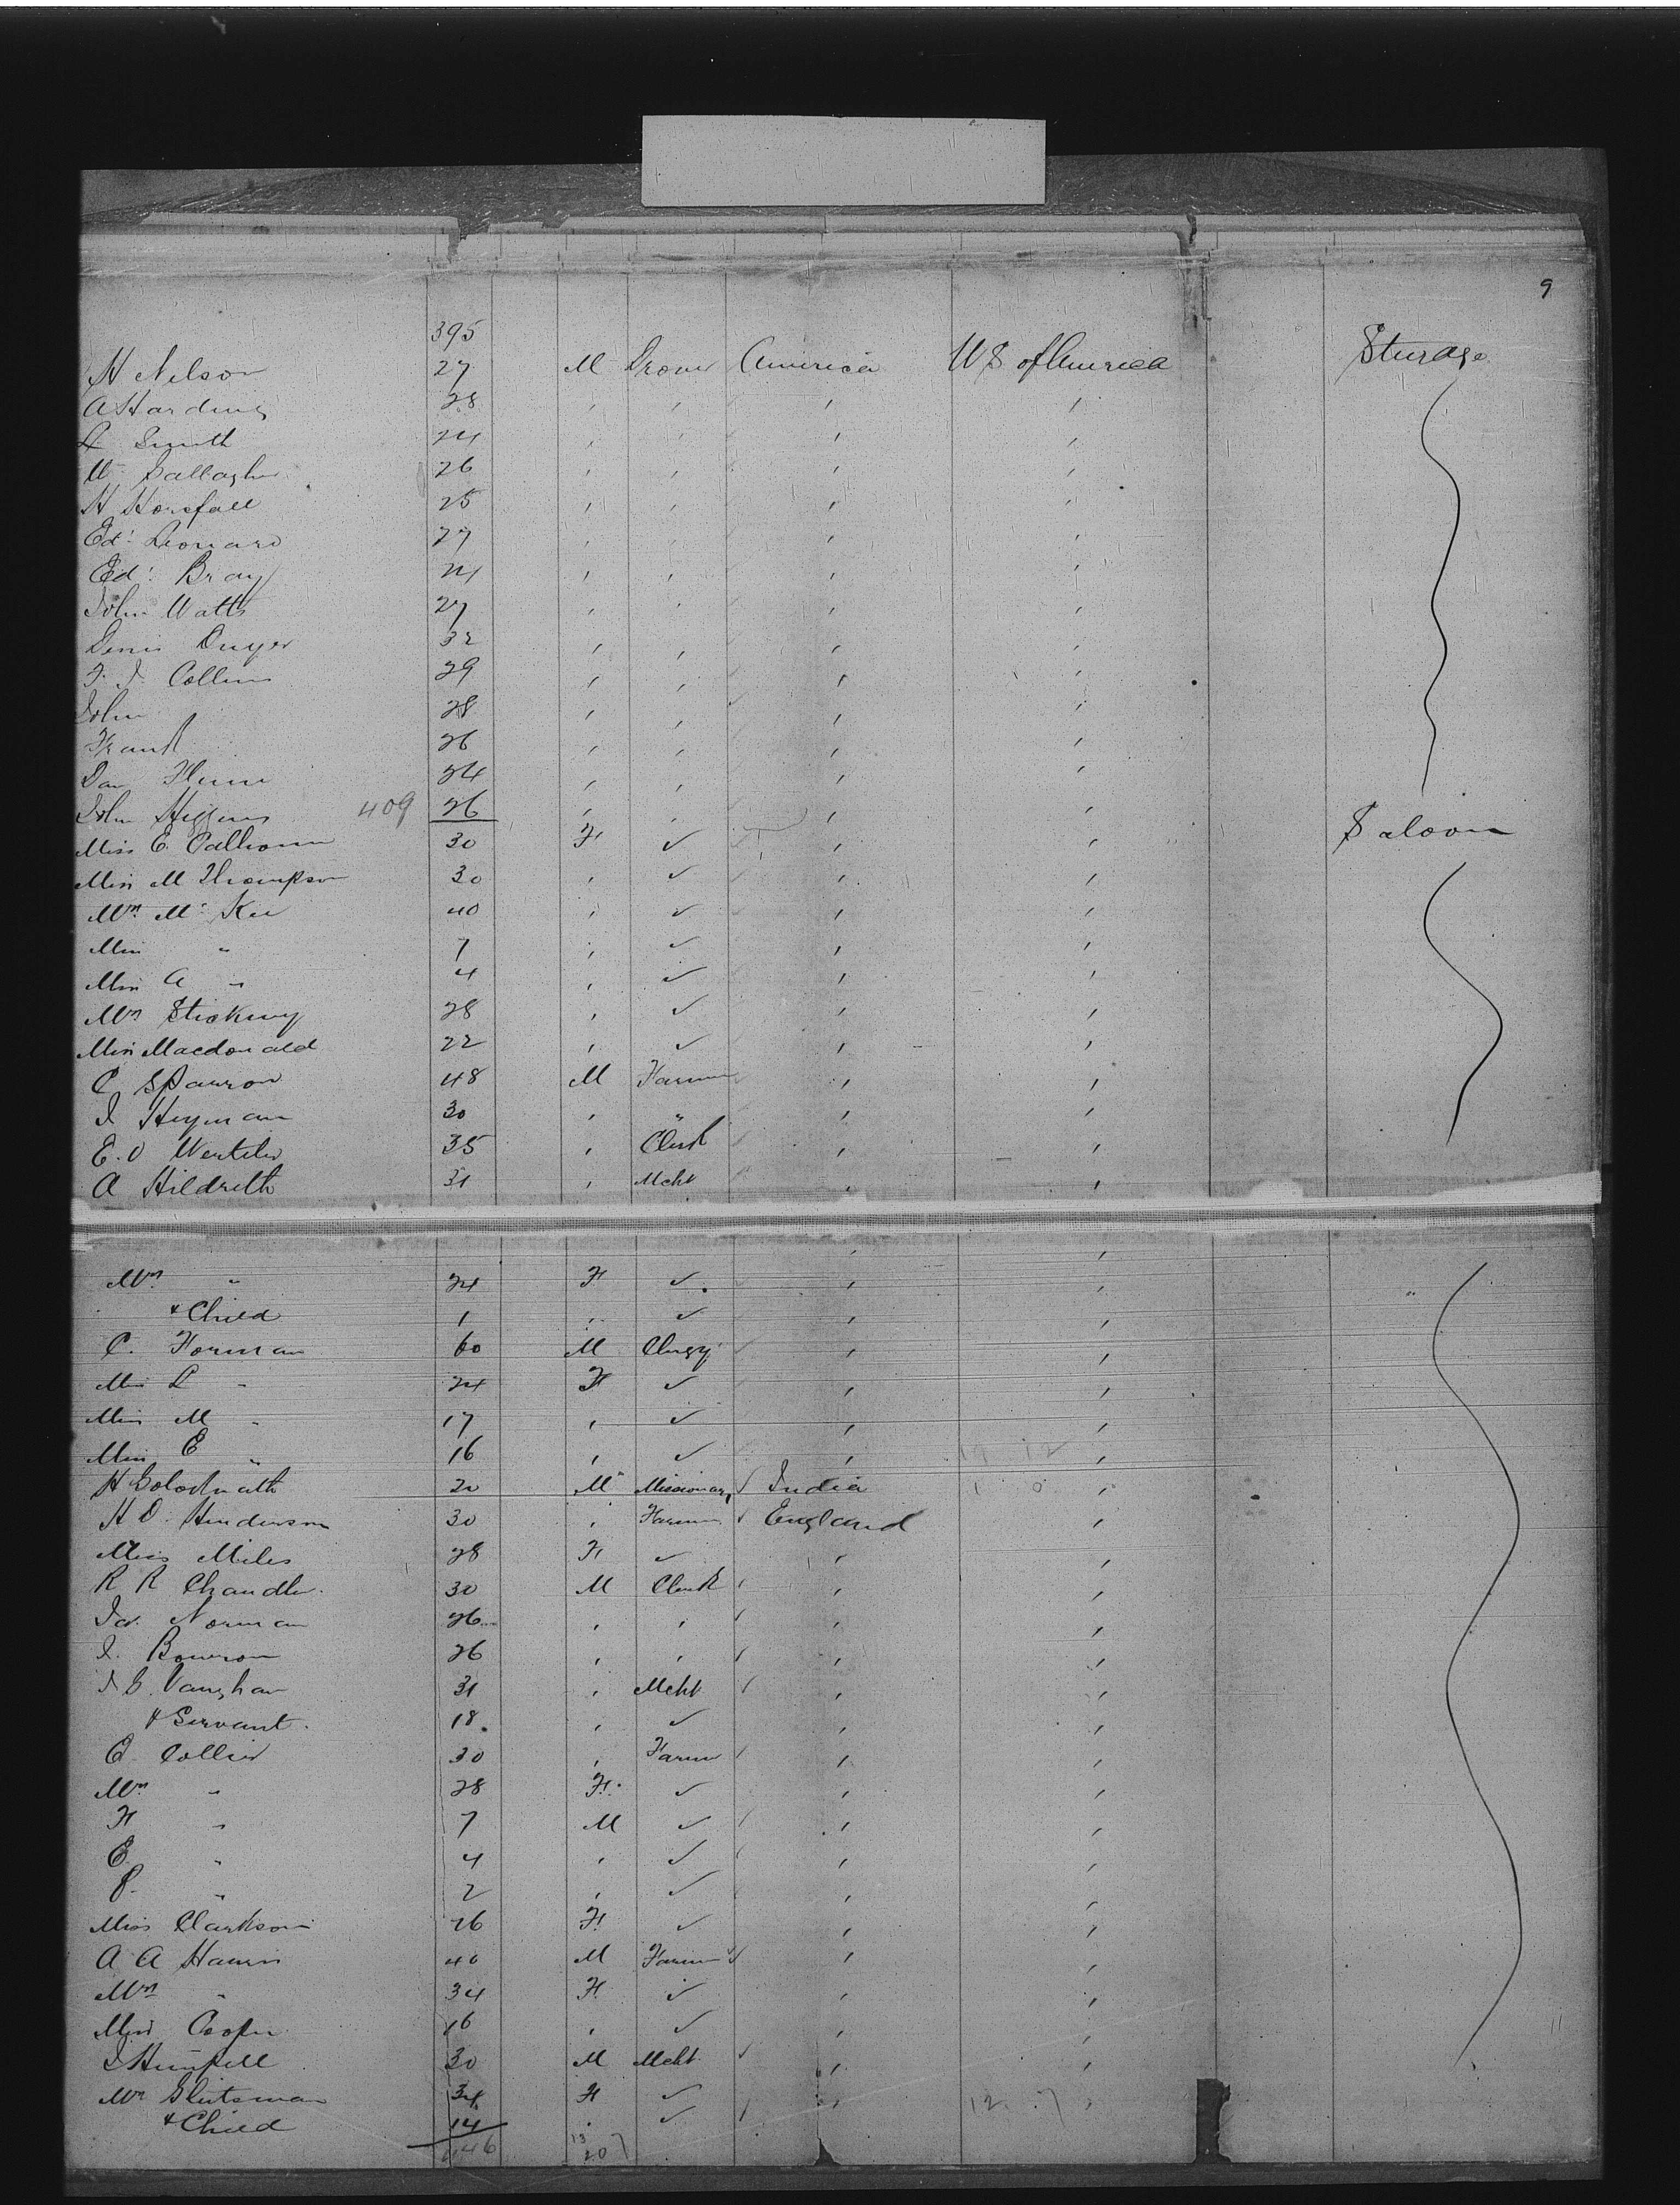 9
395
H Nelson 27 M Drover America U S of America Sturage
A Harding 28 ' ' ' '
Smith 24 ' ' ' '
Gallagher 26 ' ' ' '
H Horsfall 25 ' ' ' '
Ed: Leonard 27 ' ' ' '
Ed: Bray 24 ' ' ' '
John Watts 27 ' ' ' '
Denis Dwyer 32 ' ' ' '
F. J. Collins 29 ' ' ' '
John 28 ' ' ' '
Frank 26 ' ' ' '
Dan 24 ' ' ' '
John Higgins 409 26 ' ' ' '
Miss E. Calhoun 30 F ✓ ' ' Saloon
Miss M Thompson 30 ' ✓ ' '
Mrs Mc Kee 40 ' ✓ ' '
Miss " 7 ' ✓ ' '
Miss A " 4 ' ✓ ' '
Mrs Stickney 28 ' ✓ ' '
Miss Macdonald 22 ' ✓ ' '
C Sparrow 48 M Farmer ' '
I Heyman 30 ' " ' '
E. O 35 ' Clerk ' '
A Hildreth 31 ' Mcht ' '
Mrs " 24 F ✓ ' '
& Child 1 " ✓ ' '
C. Forman 60 M Clergy ' '
Miss L " 24 F ✓ ' '
Miss M " 17 ' ✓ ' '
Miss E " 16 ' ✓ ' '
H Golocknath 20 M Missionary ✓ India '
H D. Henderson 30 ' Farmer ✓ England '
Miss Miles 28 F ✓ ' '
R R Chandler 30 M Clerk ' '
Jas. Norman 26 ' ' ' '
J. Bowron 26 ' ' ' '
J G. Vaughan 31 ' Mcht ✓ ' '
& Servant 18 ' ✓ ' '
E. Collier 30 ' Farmer ' '
Mrs " 28 F. ✓ ' '
H " 7 M ✓ ' '
E. " 4 ' ✓ ' '
P. " 2 ' ✓ ' '
Miss Clarkson 26 F ✓ ' '
A A Harris 40 M Farmer ✓ ' '
Mrs " 34 F ✓ ' '
Miss Cooper 16 ' ✓ ' '
30 M Mcht ✓ ' '
Mrs Glutsman 34 F ✓ ' '
& Child 14 ' ✓ '
446